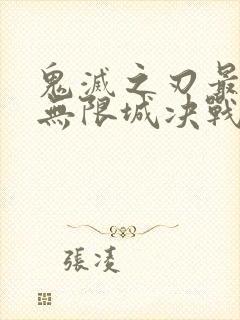 鬼滅之刃最
無限城决戰
張凌